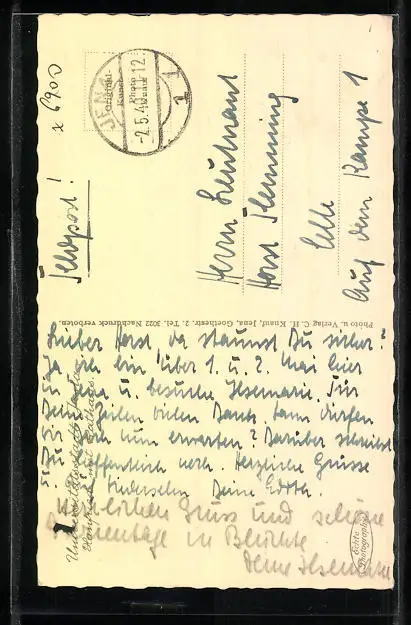 x 6900
Original-
Photo
Karte
JENA
-2.5.40.11-12
1
Feldpost!
Herrn Leutnant
Horst Henning
Celle
Auf dem Kampe 1
Photo u. Verlag C. H. Knauf, Jena, Goethestr. 2, Tel. 3022 Nachdruck verboten.
Lieber Horst, da staunst Du sicher?
Ja, ich bin über 1. u. 2. Mai hier
u. besuche Ilsemarie. Für
Deine Zeilen vielen Dank, wann dürfen
wir Dich nun erwarten? Darüber schreibst
Du hoffentlich noch. Herzliche Grüsse
Wiedersehen Deine Edith.
Herzlichen Gruss und schöne
Ferientage in
Deine Ilsemarie
Universitätsstadt Jena
mit Rathaus.
Echte
Photographie